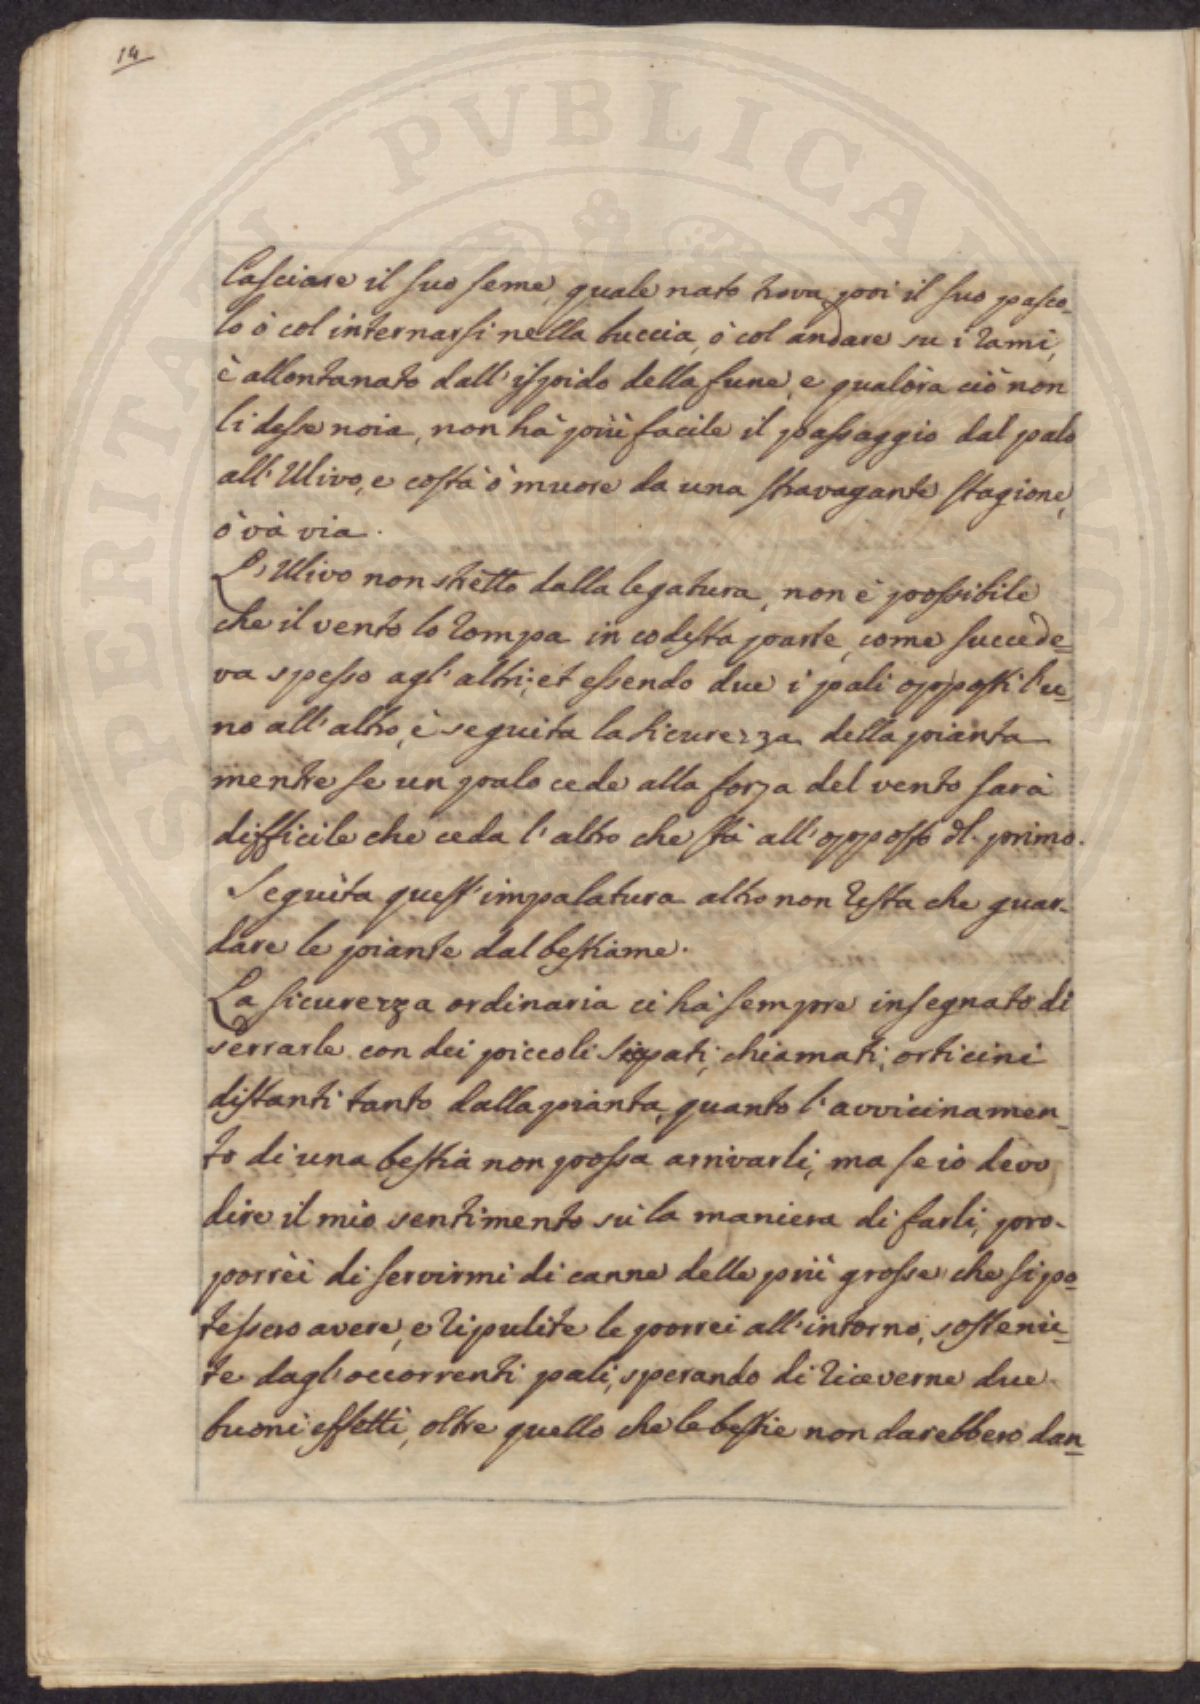 14
PROSPERITATI PUBLICAE AUGENDAE
lasciare il suo seme, quale nato trova poi il suo pasco-
lo ò col internarsi nella buccia, ò col andare su i rami,
è allontanato dall'ispido della fune, e qualòra ciò non
li desse noia, non hà più facile il passaggio dal palo
all'Ulivo, e costà ò muore da una stravagante stagione,
ò và via.
L'Ulivo non stretto dalla legatura, non è possibile
che il vento lo rompa in codesta parte, come succede-
va spesso agl'altri; et essendo due i pali opposti l'u-
no all'altro, è seguita la sicurezza della pianta
mentre se un palo cede alla forza del vento sarà
difficile che ceda l'altro che stà all'opposto dl. primo.
Seguìta quest'impalatura altro non resta che guar-
dare le piante dal bestiame.
La sicurezza ordinaria ci hà sempre insegnato di
serrarle con dei piccoli siepati, chiamati, orticini
distanti tanto dalla pianta, quanto l'avvicinamen-
to di una bestia non possa arrivarli, ma se io devo
dire il mio sentimento sù la maniera di farli, pro-
porrèi di servirmi di canne delle più grosse che si po-
tessero avere, e ripulite le porrei all'intorno, sostenu-
te dagl'occorrenti pali, sperando di riceverne due
buoni effetti, oltre quello che le bestie non darebbero dan-